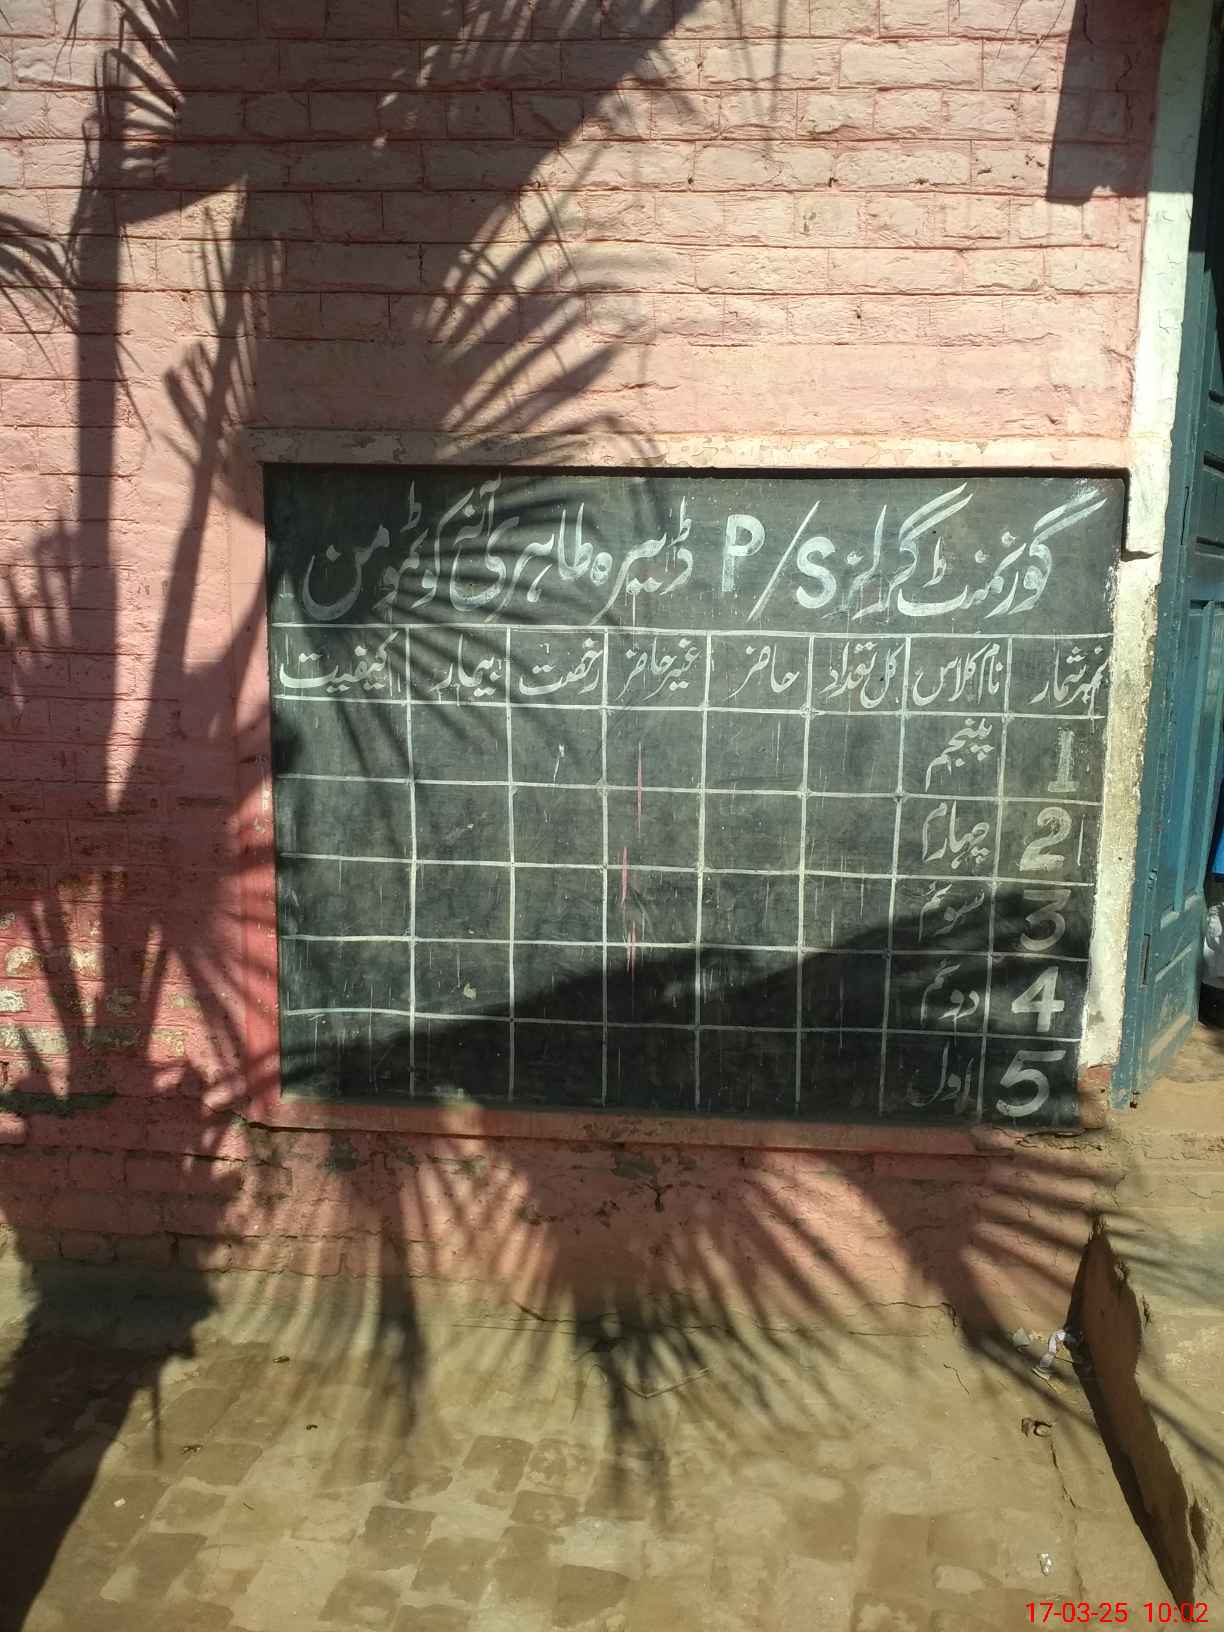 گورنمنٹ گرلز P/S ڈیرہ طاہری آنہ کوٹمومن
نمبر شمار نام کلاس کل تعداد حاضر غیر حاضر رخصت بیمار کیفیت
1 پنجم
2 چہارم
3 سوئم
4 دوئم
5 اول
17-03-25 10:02